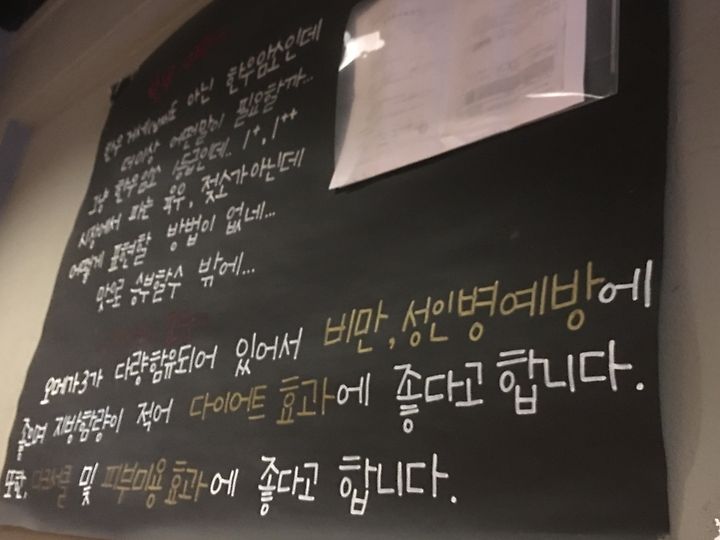 아닌 한우암소인데
더이상 어떤말이 필요할까...
그냥 한우암소 상등급인데.. 1+, 1++
시장에서 파는 육우, 젖소가 아닌데
어떻게 표현할 방법이 없네...
맛으로 승부할수 밖에...
오메가3가 다량함유되어 있어서 비만, 성인병예방에
좋으며 지방함량이 적어 다이어트 효과에 좋다고 합니다.
또한, 및 피부미용효과에 좋다고 합니다.